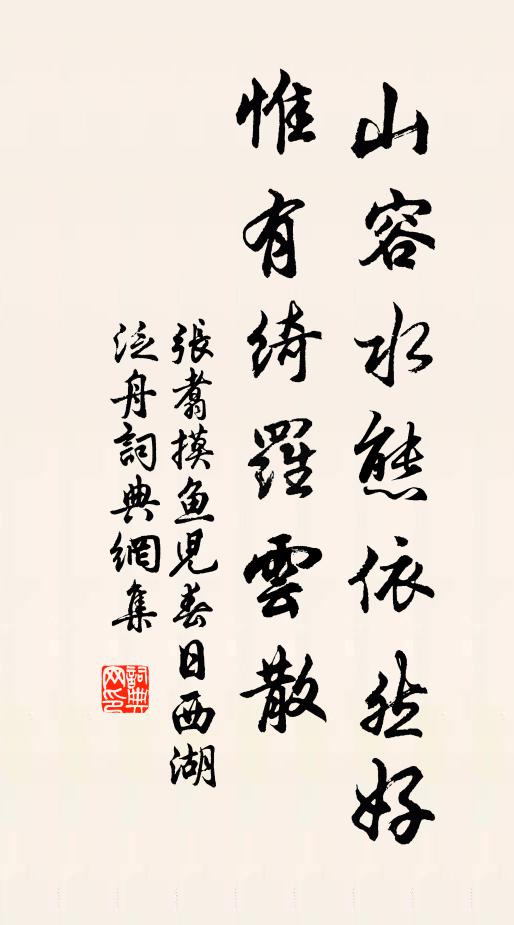 山容水態依然好
惟有綺羅雲散
張翥摸魚児春日西湖
泛舟詞典網集
詞典網印